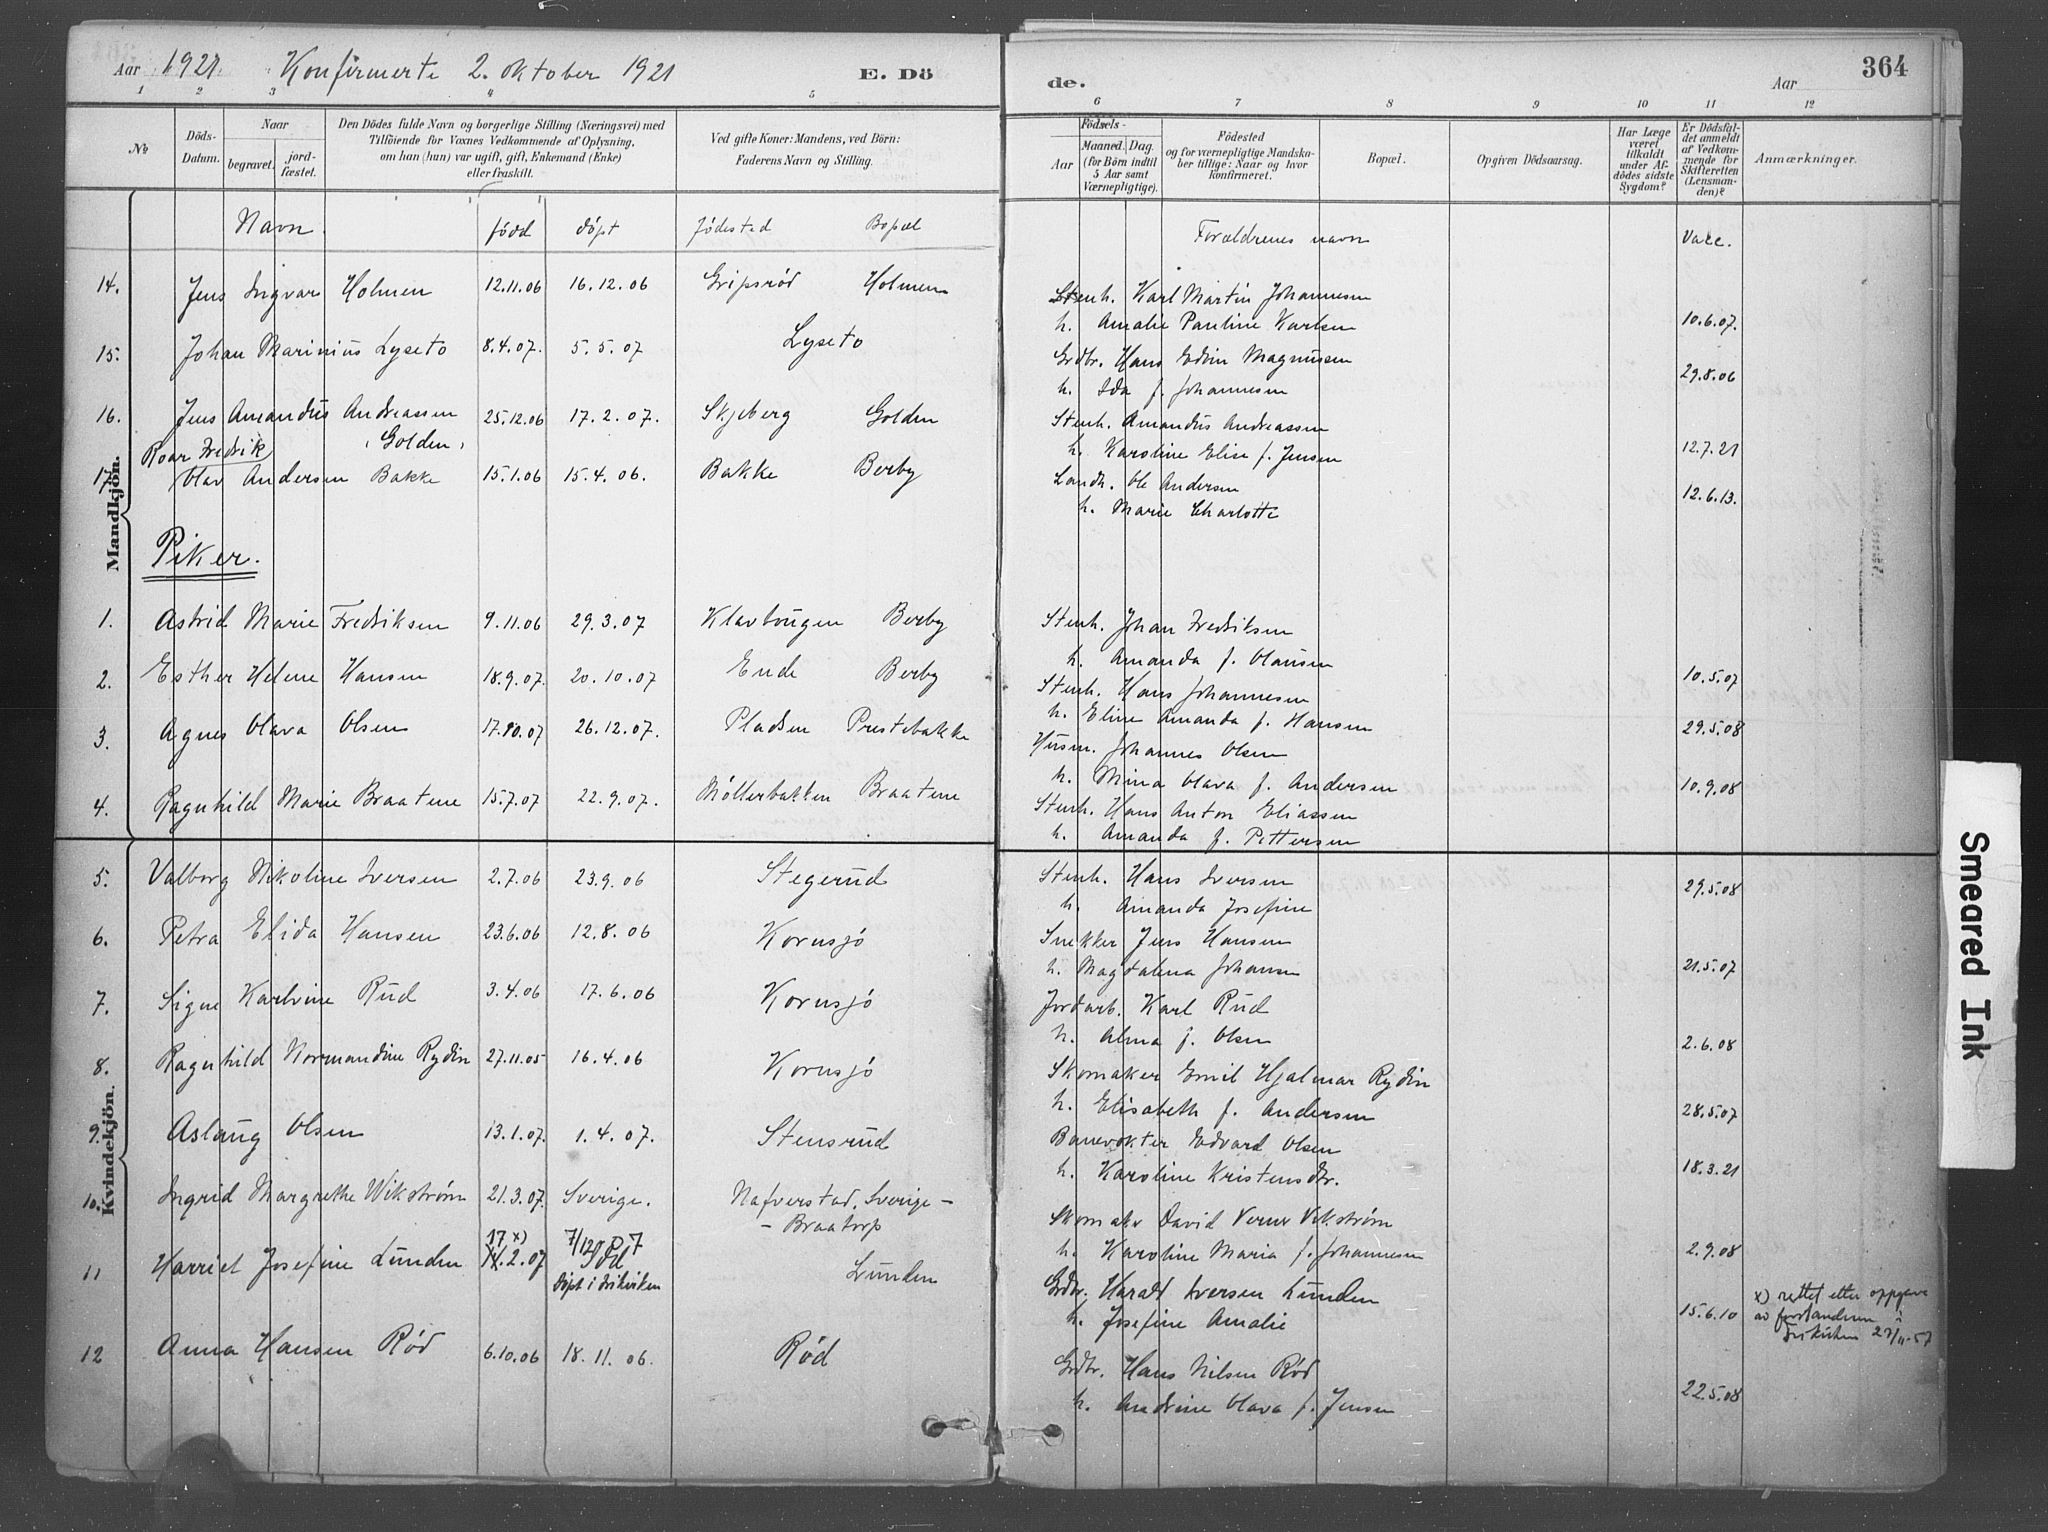 Aar 1921. Konfirmerte 2. oktober 1921 E. Dö
de. Aar 364
1 2 3 4 5
6 7 8 9 10 11 12
No
Döds-Datum.
Naar
begravet. jord-fæstet.
Den Dödes fulde Navn og borgerlige Stilling (Næringsvei) med
Tilföiende for Voxnes Vedkommende af Oplysning,
om han (hun) var ugift, gift, Enkemand (Enke)
eller fraskilt.
Ved gifte Koner: Mandens, ved Börn:
Faderens Navn og Stilling.
Födsels-
Aar Maaned. Dag.
(for Börn indtil
5 Aar samt
Værnepligtige).
Födested
og for værnepligtige Mandska-
ber tillige: Naar og hvor
konfirmeret.
Bopæl.
Opgiven Dödsaarsag.
Har Læge
været
tilkaldt
under Af-
dödes sidste
Sygdom?
Er Dödsfal-
det anmeldt
af Vedkom-
mende for
Skifteretten
(Lensman-
den)?
Anmærkninger.
Navn. född döpt födested Bopæl Forældrenes navn Vacc.
Mandkjön.
14. Jens Ingvar Holmen 12.11.06 16.12.06 Gripsrød Holmen Stenh. Karl Martin Johannesen
h. Amalie Pauline Karlsen 10.6.07.
15. Johan Marinius Lyseto 8.4.07. 5.5.07 Lyseto Grdbr. Hans Edvin Magnussen
h. Ida f. Johannesen 29.8.06
16. Jens Amandus Andreassen 25.12.06 17.2.07. Skjeberg Golden Stenh. Amandus Andreassen
(Golden) h. Karoline Elise f. Jensen 12.7.21
Roar Fredrik
17. Olav Andersen Bakke 15.1.06 15.4.06. Bakke Berby Landh. Ole Andersen
h. Marie Charlotte 12.6.13.
Piker.
1. Astrid Marie Fredriksen 9.11.06 29.3.07 Klavbougen Berby Stenh. Johan Fredriksen
h. Amanda f. Olausen 10.5.07
2. Esther Helene Hansen 18.9.07. 20.10.07 Ende Berby Stenh. Hans Johannesen
h. Eline Amanda f. Hansen 29.5.08
3. Agnes Olava Olsen 17.10.07 26.12.07. Pladsen Prestebakke Husm. Johannes Olsen
h. Mina Olava f. Andersen 10.9.08
4. Ragnhild Marie Braatene 15.7.07 22.9.07. Møllerbakken Braatene Stenh. Hans Anton Eliassen
h. Amanda f. Pettersen
Kvindekjön.
5. Valborg Nikoline Iversen 2.7.06 23.9.06 Stegerud Stenh. Hans Iversen
h. Amanda Josefine 29.5.08
6. Petra Elida Hansen 23.6.06 12.8.06 Kornsjø Snekker Jens Hansen
h. Magdalena Johansen 21.5.07
7. Signe Karlvine Rud 3.4.06 17.6.06 Kornsjø Jordarb. Karl Rud
h. Alma f. Olsen 2.6.08
8. Ragnhild Normandine Rydin 27.11.05 16.4.06 Kornsjø Skomaker Emil Hjalmar Rydin
h. Elisabeth f. Andersen 28.5.07
9. Aslaug Olsen 13.1.07. 1.4.07. Stensrud Banevokter Edvard Olsen
h. Karoline Kristensdtr. 18.3.21
10. Ingrid Margrethe Wikstrøm 21.3.07. Sverige. Nafverstad, Sverige -
- Braatorp Skomaker David Verner Vikstrøm
h. Karoline Maria f. Johannesen 2.9.08
17 x) 7/12 07
11 Harriet Josefine Lunden 14.2.07 Død Lunden Grdbr. Harald Iversen Lunden
Døpt i frikirken
h. Josefine Amalie 15.6.10
x) rettet etter oppgave
av forstanderen i
Frikirken 27/11-57
12 Anna Hansen Rød 6.10.06 18.11.06. Rød Grdbr. Hans Nilsen Rød
h. Andrine Olava f. Jensen 22.5.08
Smeared Ink